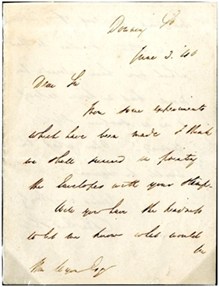 Downing St
June 3. 40
Dear Sir
From some experiments
which have been made I think
we shall succeed in printing
the Envelopes with your Stamp.
Will you have the kindness
to let me know what would
be
Esqr